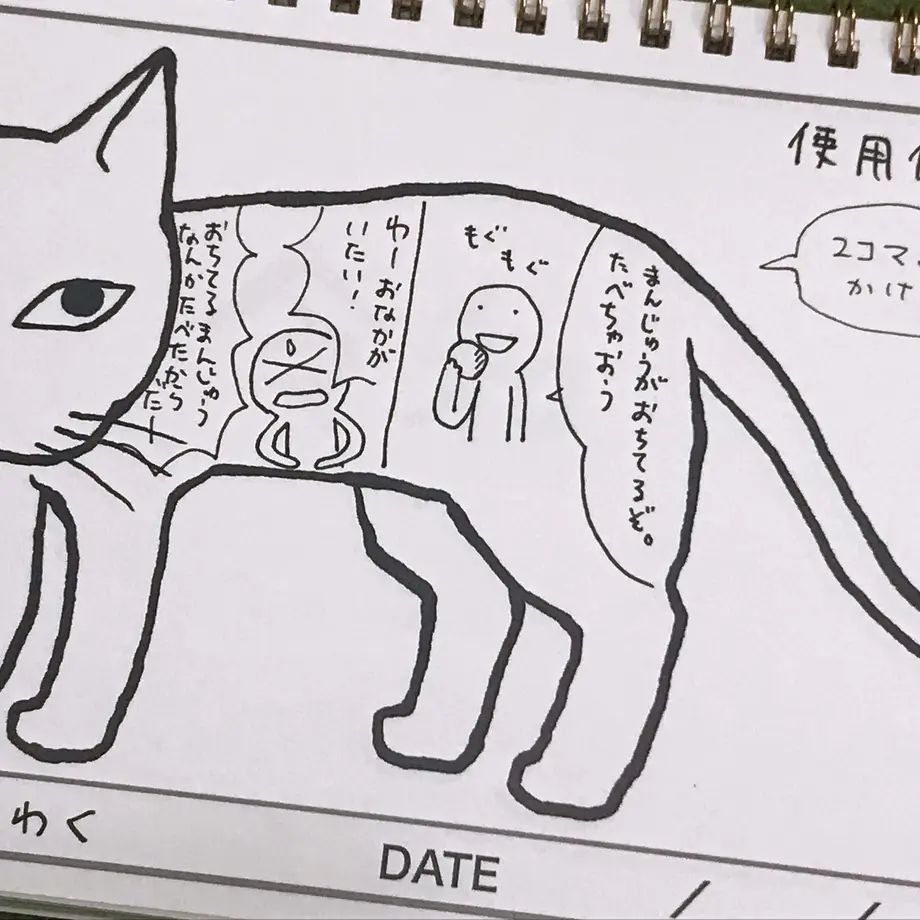 使用
2コマ
かけ
まんじゅうがおちてるぞ。
たべちゃおう
もぐ
もぐ
わーおなかが
いたい!
おちてるまんじゅう
なんかたべたから
だー
わく
DATE